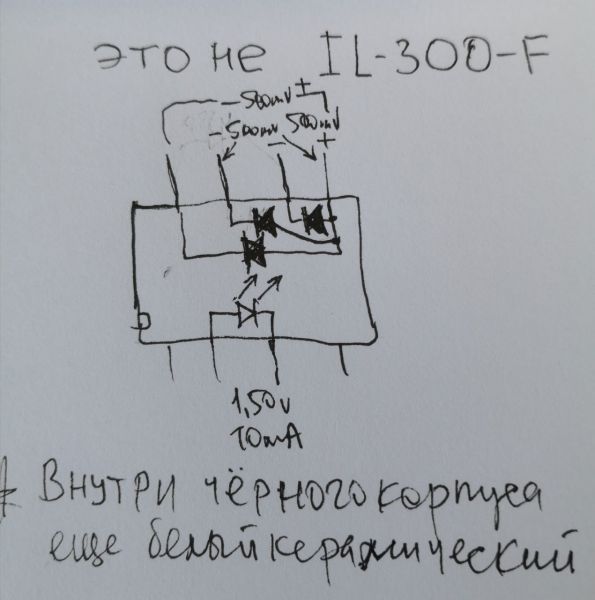 это не IL-300-F
-500mV +
-500mV - 500mV +
1,50v
10mA
* Внутри чёрного корпуса
еще белый керамический